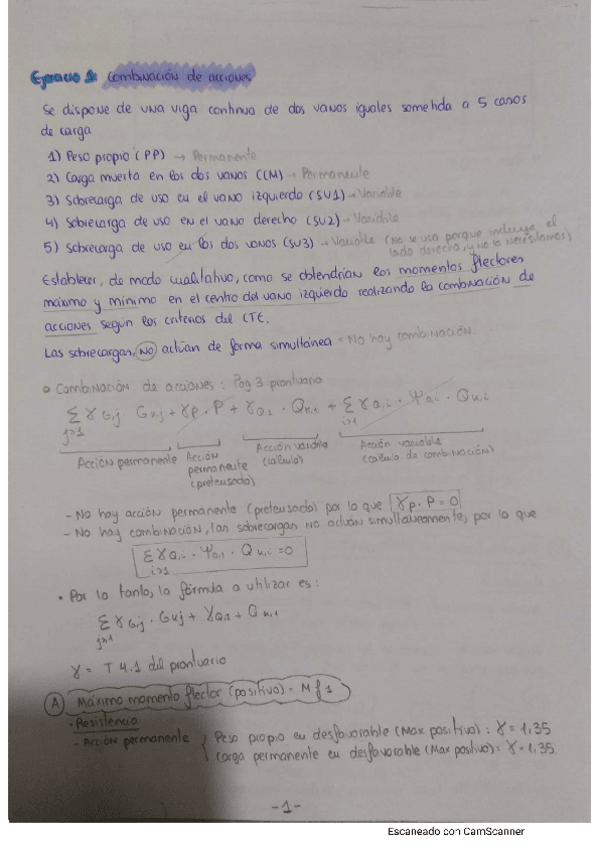 Ejercicio 1: Combinación de acciones
Se dispone de una viga continua de dos vanos iguales sometida a 5 casos
de carga
1) Peso propio (PP) → Permanente
2) Carga muerta en los dos vanos (CM) → Permanente
3) Sobrecarga de uso en el vano izquierdo (SU1) → Variable
4) Sobrecarga de uso en el vano derecho (SU2) → Variable
5) Sobrecarga de uso en los dos vanos (SU3) → Variable (No se usa porque incluye el
lado derecho, y no lo necesitamos)
Establecer, de modo cualitativo, como se obtendrían los momentos flectores
máximo y mínimo en el centro del vano izquierdo realizando la combinación de
acciones según los criterios del CTE.
Las sobrecargas NO actúan de forma simultánea = No hay combinación
Combinación de acciones: Pag 3 prontuario
Σ γG,j · Gk,j + γp · P + γQ,1 · Qk,1 + Σ γQ,i · Ψ0,i · Qk,i
j≥1 i>1
Acción permanente Acción permanente (pretensado) Acción variable (cálculo) Acción variable (cálculo de combinación)
- No hay acción permanente (pretensado) por lo que γp · P = 0
- No hay combinación, las sobrecargas NO actúan simultáneamente, por lo que
Σ γQ,i · Ψ0,i · Qk,i = 0
i>1
• Por lo tanto, la fórmula a utilizar es:
Σ γG,j · Gk,j + γQ,1 + Qk,1
j≥1
γ = T 4.1 del prontuario
A Máximo momento flector (positivo) = Mf1
· Resistencia
- Acción permanente { Peso propio en desfavorable (Max positivo): γ = 1,35
Carga permanente en desfavorable (Max positivo): γ = 1,35
-1-
Escaneado con CamScanner